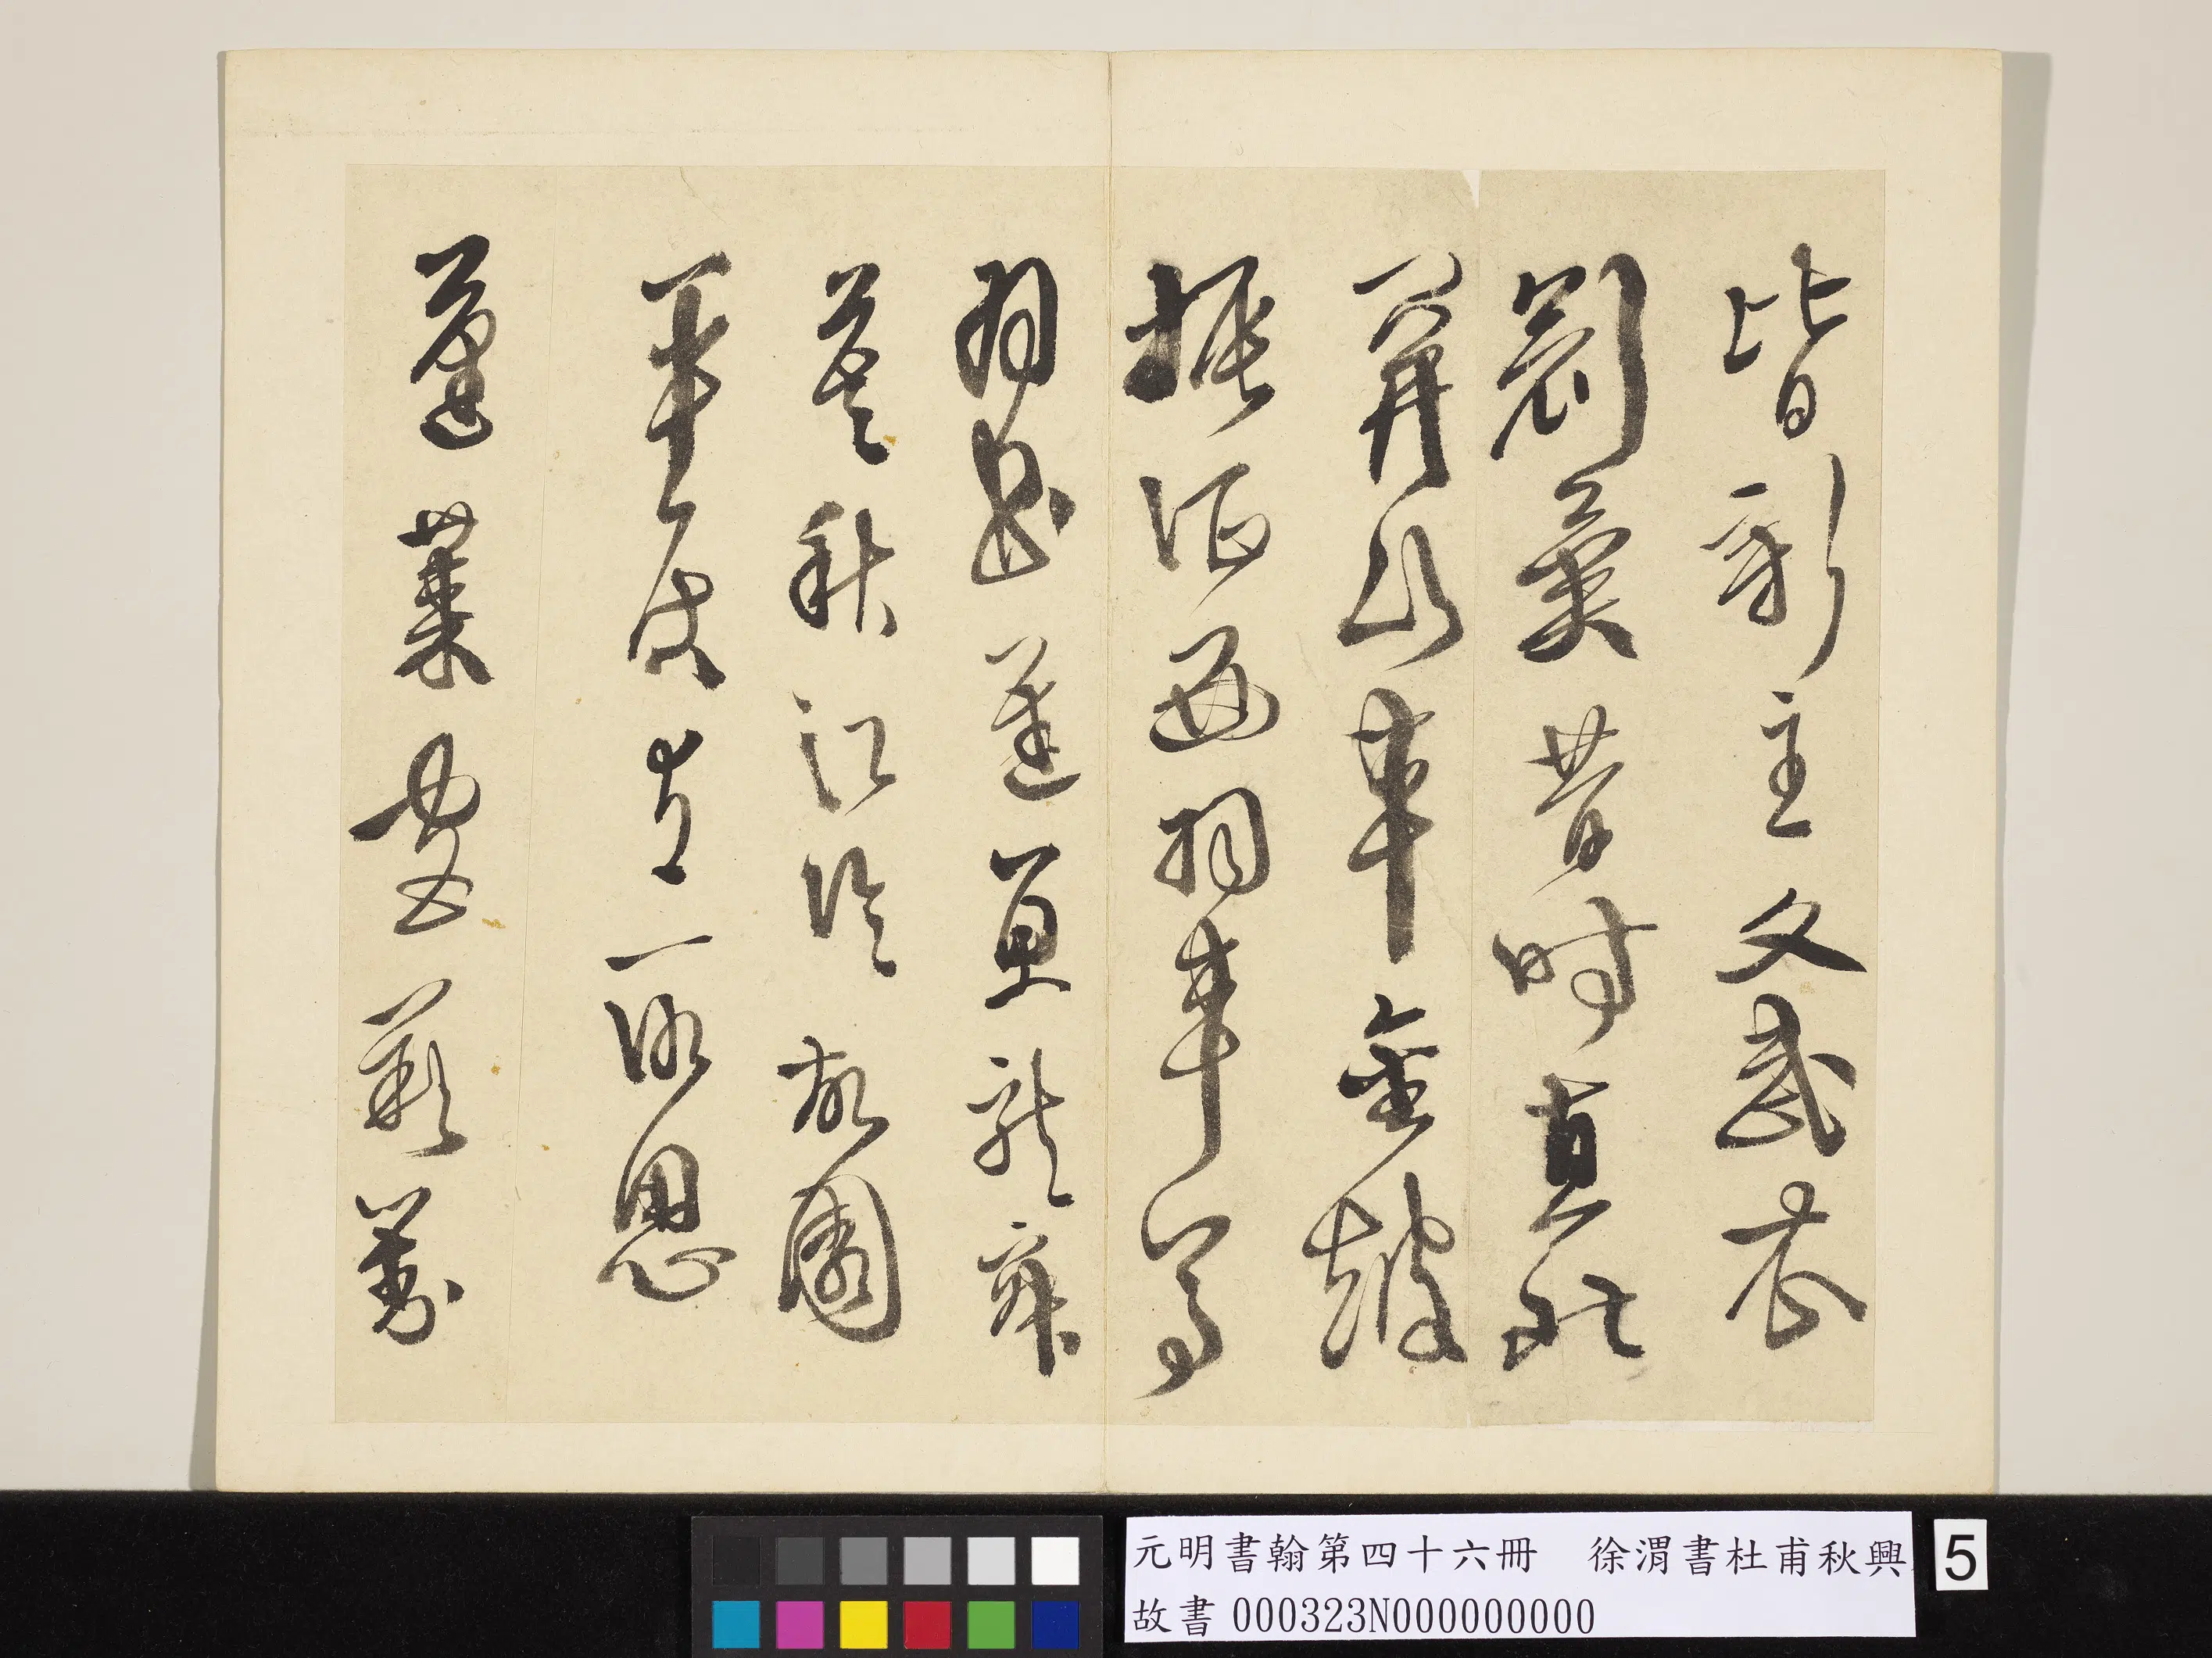 皆新主文武衣
冠異昔時直北
關山車金鼓
振征西羽車馬
羽書遲魚龍寂
寞秋江冷故國
平居有所思
蓬萊宮闕對
元明書翰第四十六冊　徐渭書杜甫秋興
故書 000323N000000000
5